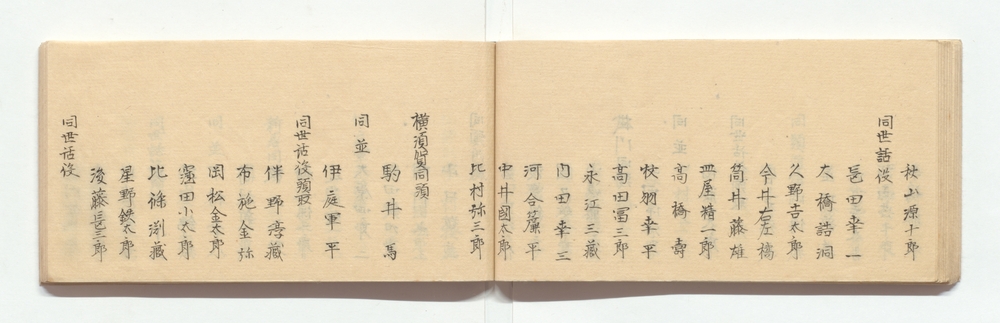 秋山源十郎
同世話役
邑田幸一
大橋誥洞
久野吉太郎
今井右左橘
筒井藤雄
皿屋精一郎
高橋壽
牧野幸平
高田冨三郎
永江三藏
内田幸三
河合簾平
中井國太郎
比村弥三郎
横須賀同頭
駒井馬
同並
伊庭軍平
同世話役頭取
伴野惇藏
布施金弥
岡松金太郎
窪田小太郎
比條渕藏
星野鉄太郎
後藤長三郎
同世話役